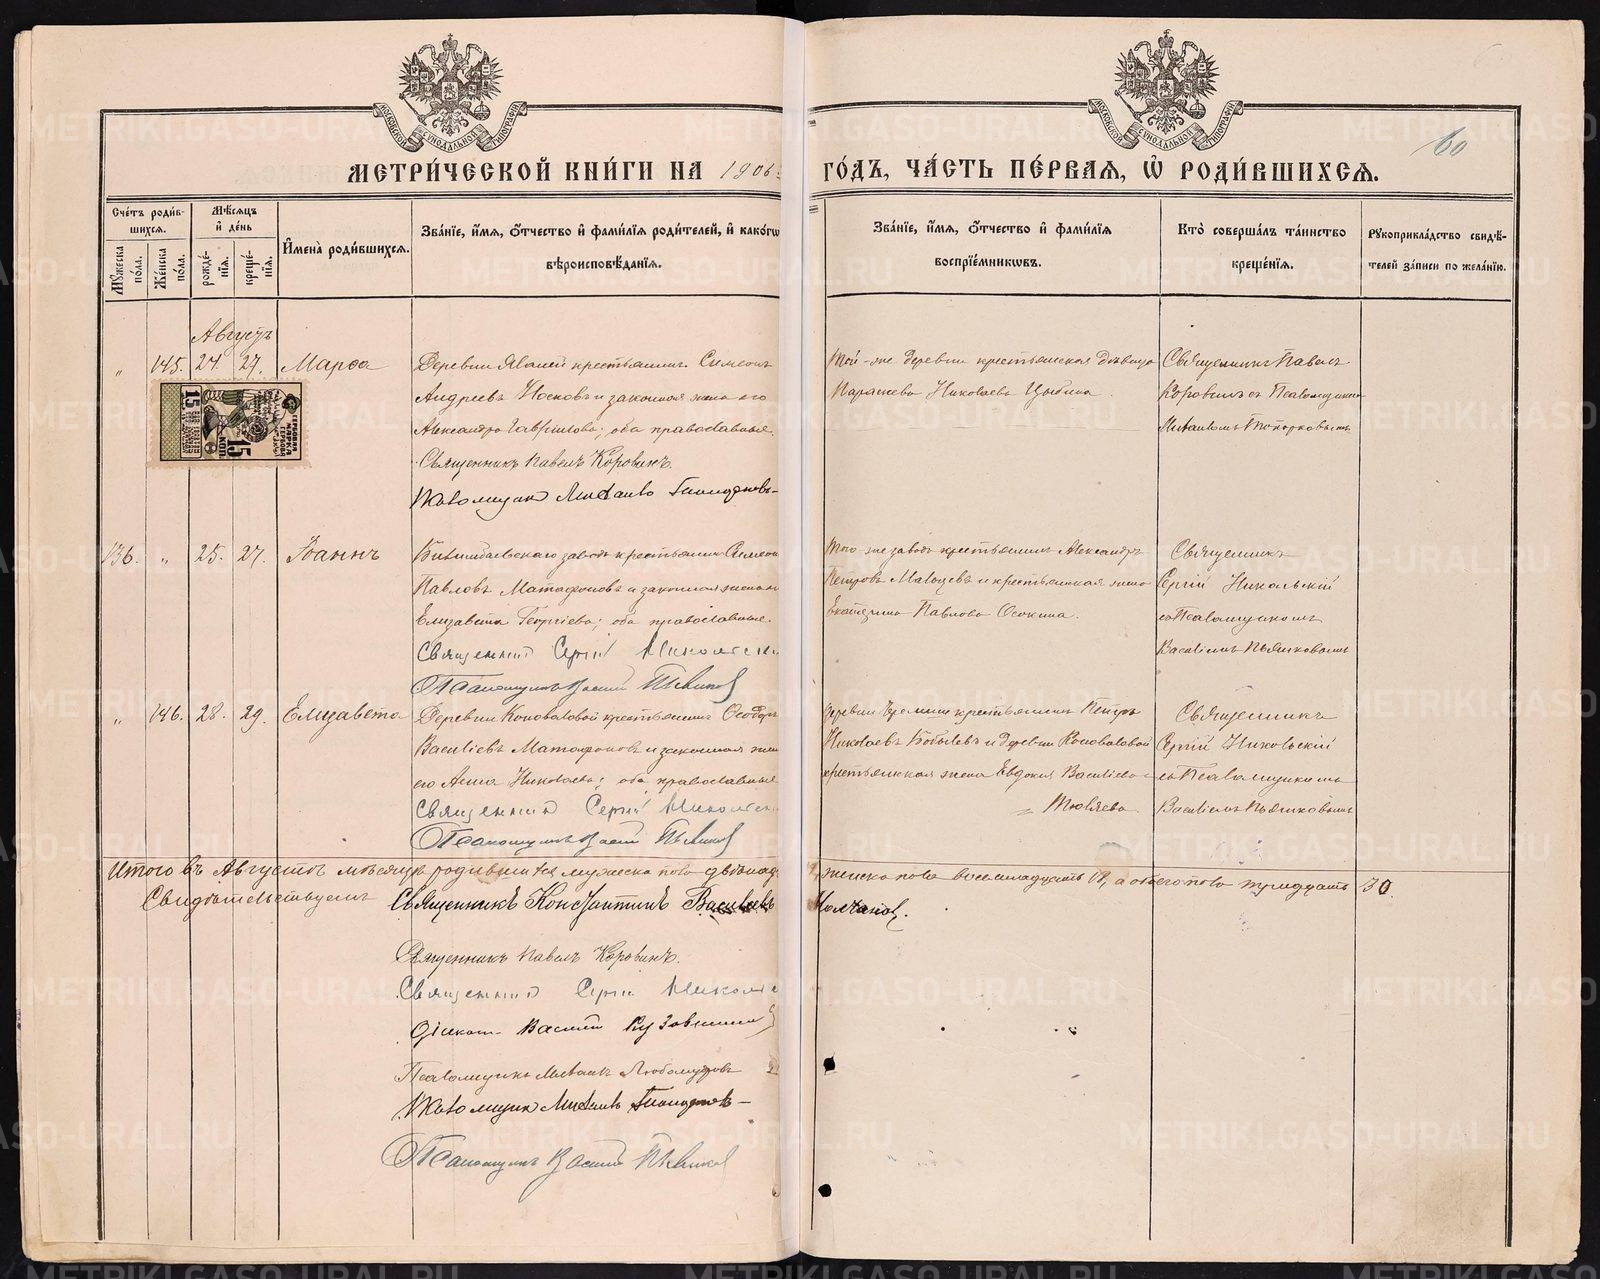 МЕТРИ́ЧЕСКОЙ КНИ́ГИ НА 1906
ГО́ДЪ, ЧА́СТЬ ПЕ́РВАЯ, Ѡ҆ РОДИ́ВШИХСЯ.
60
Сче́тъ роди́в-
шихся.
Мꙋжеска по́ла.
Же́нска по́ла.
Мѣ́сяцъ и҆ де́нь
рожде́-нїя.
креще́-нїя.
И҆мена̀ роди́вшихся.
Зва́нїе, и҆́мя, ѻ҆́тчество и҆ фами́лїя роди́телей, и҆ како́гѡ
вѣроисповѣ́данїя.
Зва́нїе, и҆́мя, ѻ҆́тчество и҆ фами́лїя
воспрїе́мникѡвъ.
Кто̀ соверша́лъ та́инство
креще́нїя.
Рꙋкоприкла́дство свидѣ́-
телей за́писи по жела́нїю.
Августъ
" 145. 24. 27. Марѳа
Деревни крестьянинъ Симеонъ
Андреевъ Носковъ и законная жена его
Александра Гаврилова; оба православные.
Священникъ Павелъ Коровинъ.
Псаломщик Михаилъ
Той-же деревни крестьянская дѣвица
Параскева Николаева Цыбина.
Священникъ Павелъ
Коровинъ съ Псаломщикомъ
Михаиломъ
15 КОП.
ГЕРБОВАЯ МАРКА
136. " 25. 27. Іоаннъ
Билимбаевскаго завода крестьянинъ Симеонъ
Павловъ Матафоновъ и законная жена
Елизавета Георгіева; оба православные.
Священникъ Сергій
Псаломщикъ Василій
Того-же завода крестьянинъ Александръ
Петровъ и крестьянская жена
Екатерина Павлова Осокина.
Священникъ
Сергій Никольскій
съ Псаломщикомъ
Василіемъ Пьянковымъ
" 146. 28. 29. Елизавета
Деревни Коноваловой крестьянинъ Ѳеодоръ
Василіевъ Матафоновъ и законная жена
его Анна Николаева; оба православные
Священникъ Сергій
Псаломщикъ Василій
деревни крестьянинъ Петръ
Николаевъ Бобылевъ и деревни Коноваловой
крестьянская жена Евдокія Василіева
Священникъ
Сергій Никольскій
съ Псаломщикомъ
Василіемъ Пьянковымъ
Итого въ Августѣ мѣсяцѣ родившихся мужеска пола
женска пола восемнадцать 18, а обоего пола тридцать 30.
Свидѣтельствуемъ
Священникъ Константинъ
Священникъ Павелъ Коровинъ.
Священникъ Сергій
Діакон Василій
Псаломщикъ Михаилъ Любомудровъ
Псаломщик Михаилъ
Псаломщикъ Василій
METRIKI.GASO-URAL.RU